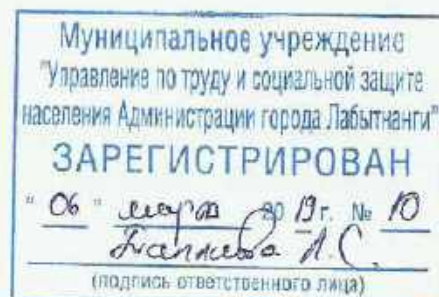 Муниципальное учреждение
"Управление по труду и социальной защите
населения Администрации города Лабытнанги"
ЗАРЕГИСТРИРОВАН
"06" марта 2019г. № 10
Л.С.
(подпись ответственного лица)